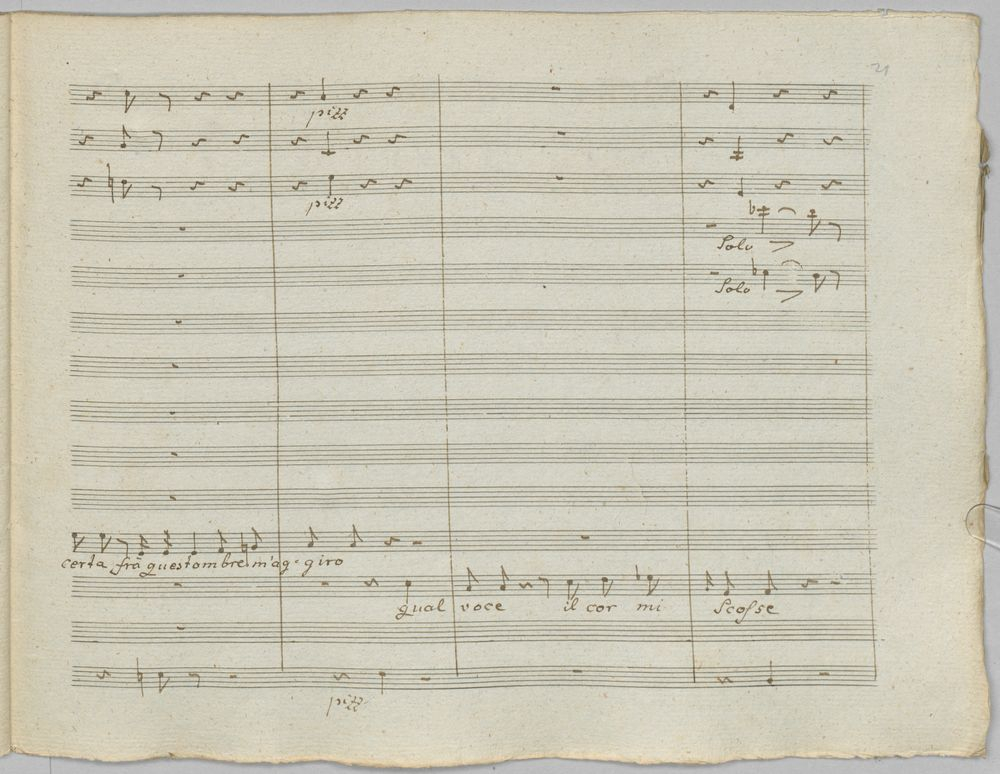 21
pizz
pizz
Solo
Solo
certa frà quest'ombre m'ag-giro
qual voce il cor mi scosse
pizz